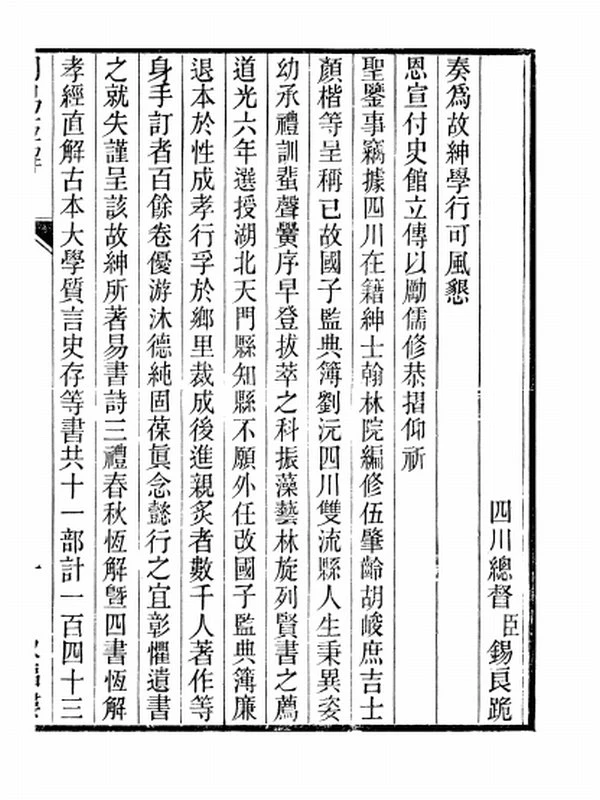 四川總督臣錫良跪
奏爲故紳學行可風懇
恩宣付史館立傳以勵儒修恭摺仰祈
聖鑒事竊據四川在籍紳士翰林院編修伍肇齡胡峻庶吉士
顏楷等呈稱已故國子監典簿劉沅四川雙流縣人生秉異姿
幼承禮訓蜚聲黌序早登拔萃之科振藻藝林旋列賢書之薦
道光六年選授湖北天門縣知縣不願外任改國子監典簿廉
退本於性成孝行孚於鄉里裁成後進親炙者數千人著作等
身手訂者百餘卷優游沐德純固葆眞念懿行之宜彰懼遺書
之就失謹呈該故紳所著易書詩三禮春秋恆解曁四書恆解
孝經直解古本大學質言史存等書共十一部計一百四十三
一